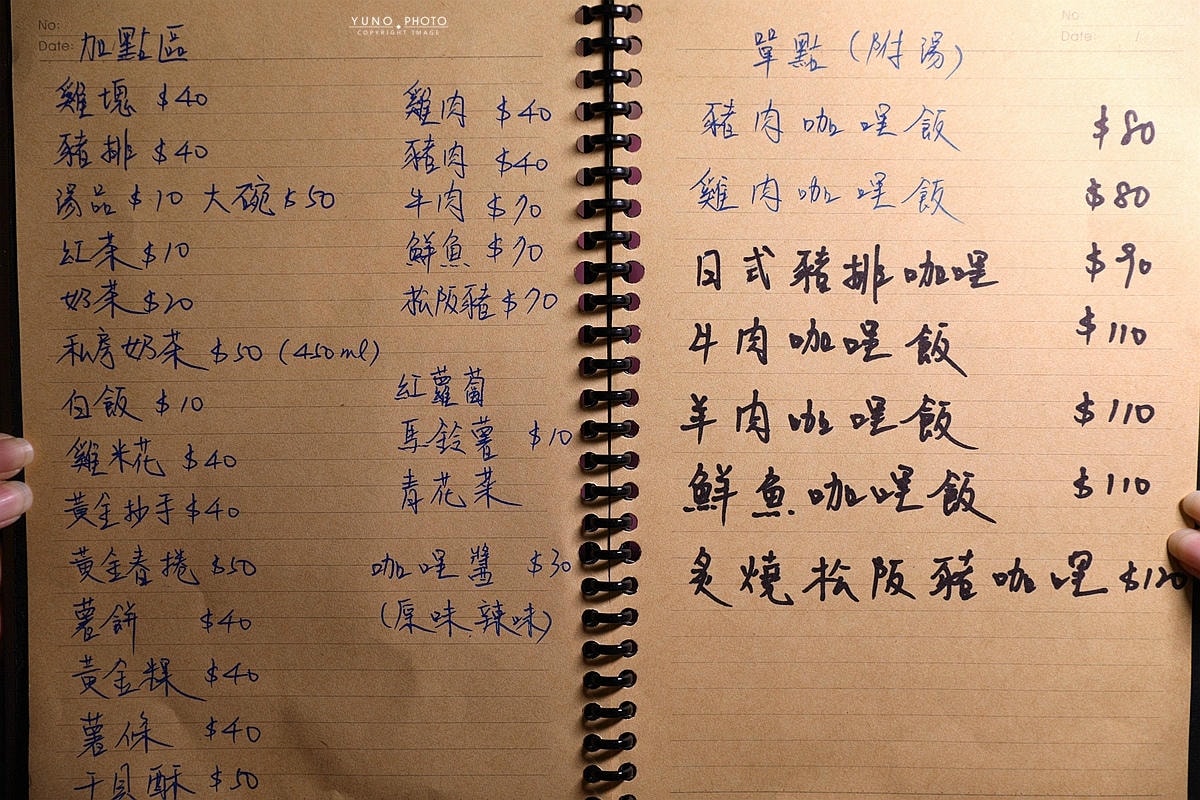 YUNO PHOTO
COPYRIGHT IMAGE
No:
Date:
加點區
雞塊 $40
豬排 $40
湯品 $10 大碗 $50
紅茶 $10
奶茶 $20
私房奶茶 $50 (450ml)
白飯 $10
雞米花 $40
黃金抄手 $40
黃金春捲 $50
薯餅 $40
黃金粿 $40
薯條 $40
干貝酥 $50
雞肉 $40
豬肉 $40
牛肉 $70
鮮魚 $70
松阪豬 $70
紅蘿蔔
馬鈴薯 $10
青花菜
咖哩醬 $30
(原味.辣味)
No
Date: /
單點(附湯)
豬肉咖哩飯 $80
雞肉咖哩飯 $80
日式豬排咖哩 $90
牛肉咖哩飯 $110
羊肉咖哩飯 $110
鮮魚咖哩飯 $110
炙燒松阪豬咖哩 $120